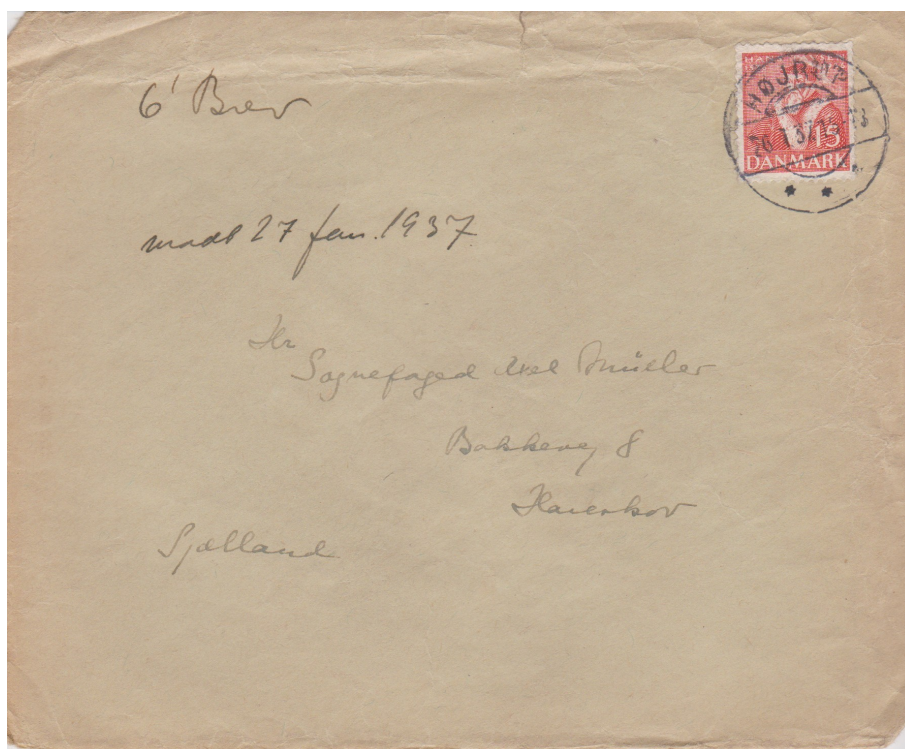 6' Brev
HØJRUP
15
DANMARK
modt 27 jan. 1937.
Hr
Sognefoged Axel Müller
Bakkevej 8
Hareskov
Sjælland